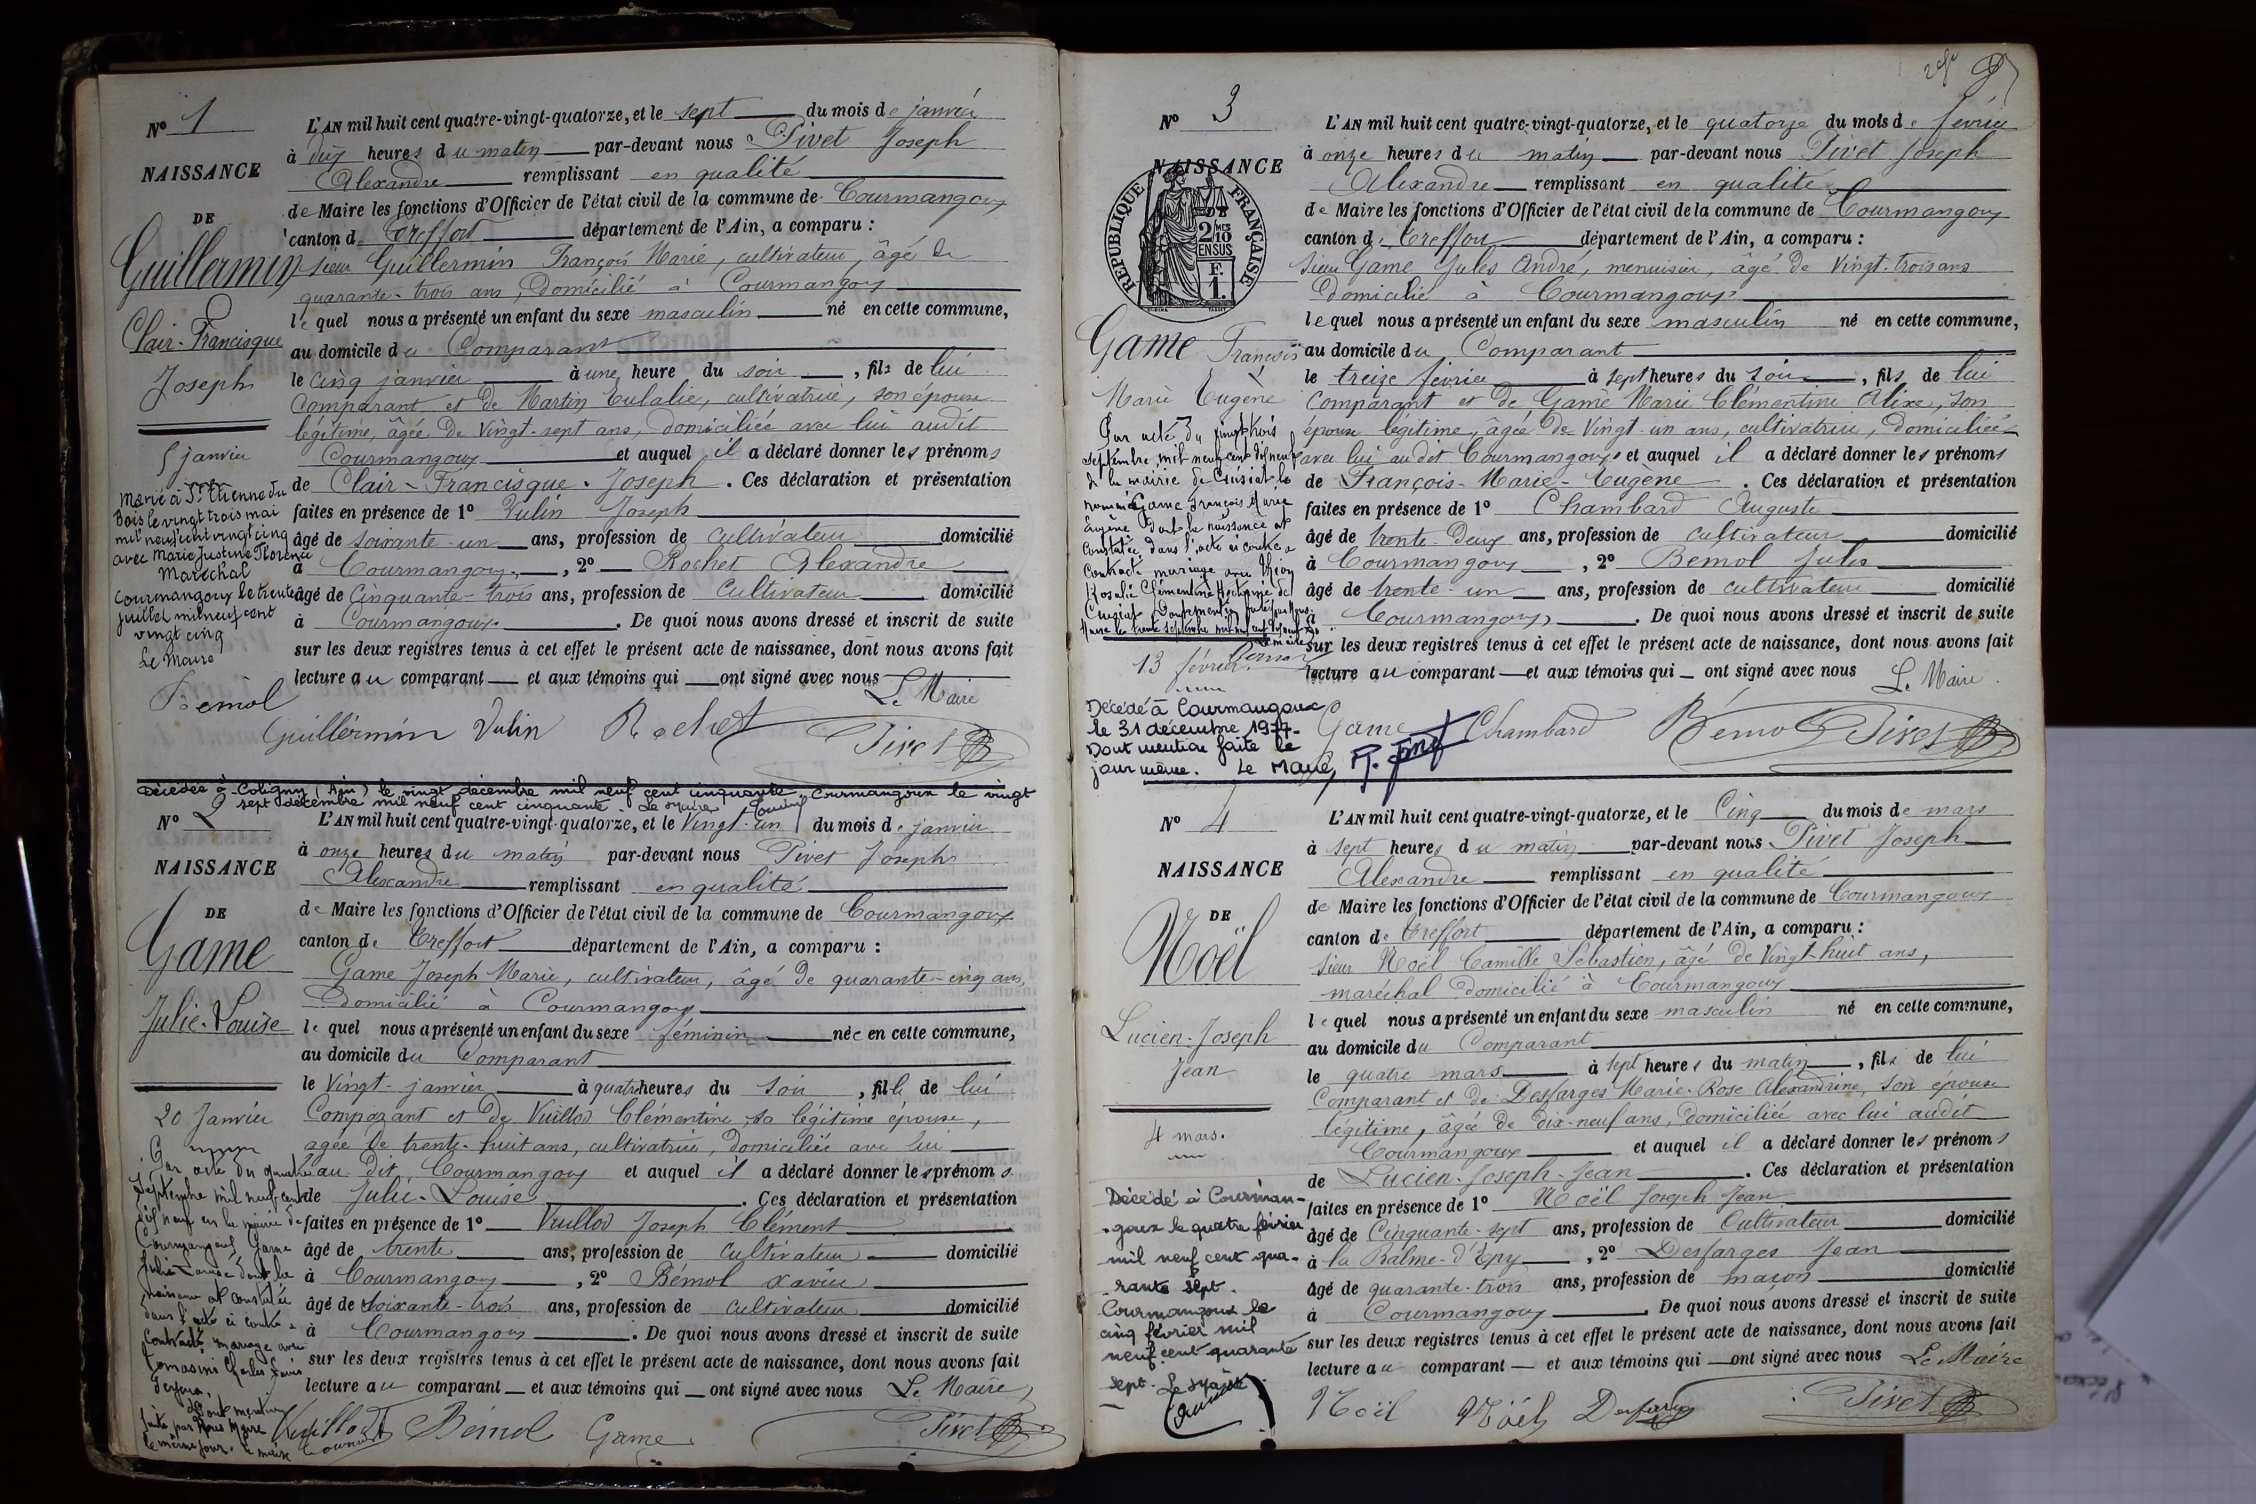 N° 1
NAISSANCE
DE
Guillermin
Clair-Francisque
Joseph
5 janvier
Marié à St Etienne du
Bois le vingt trois mai
mil neuf cent vingt cinq
avec Marie Justine Florence
Maréchal
Courmangoux le trente
juillet mil neuf cent
vingt cinq
Le Maire
Bémol
L'AN mil huit cent quatre-vingt-quatorze, et le sept du mois de janvier
à dix heures du matin par-devant nous Pivet Joseph
Alexandre remplissant en qualité
de Maire les fonctions d'Officier de l'état civil de la commune de Courmangoux
canton de Treffort département de l'Ain, a comparu :
sieur Guillermin François Marie, cultivateur, âgé de
quarante-trois ans, domicilié à Courmangoux
lequel nous a présenté un enfant du sexe masculin né en cette commune,
au domicile du Comparant
le cinq janvier à une heure du soir, fils de lui
comparant et de Martin Eulalie, cultivatrice, son épouse
légitime, âgée de vingt-sept ans, domiciliée avec lui audit
Courmangoux et auquel il a déclaré donner les prénoms
de Clair-Francisque-Joseph. Ces déclaration et présentation
faites en présence de 1° Vulin Joseph
âgé de soixante-un ans, profession de cultivateur domicilié
à Courmangoux, 2° Rochet Alexandre
âgé de cinquante-trois ans, profession de cultivateur domicilié
à Courmangoux. De quoi nous avons dressé et inscrit de suite
sur les deux registres tenus à cet effet le présent acte de naissance, dont nous avons fait
lecture au comparant et aux témoins qui ont signé avec nous
Le Maire
Guillermin Vulin Rochet Pivet
Décédée à Coligny (Ain) le vingt décembre mil neuf cent cinquante. Courmangoux le vingt
sept décembre mil neuf cent cinquante. Le Maire
N° 2
NAISSANCE
DE
Game
Julie-Louise
20 Janvier
Par acte du quatre
Septembre mil neuf cent
dix neuf en la mairie de
Courmangoux Game
Julie Louise dont la
naissance est constatée
dans l'acte ci contre a
contracté mariage avec
Tomasini Charles Louis
dont mention
faite par Nous Maire
le même jour. Le maire
L'AN mil huit cent quatre-vingt-quatorze, et le Vingt-un du mois de janvier
à onze heures du matin par-devant nous Pivet Joseph
Alexandre remplissant en qualité
de Maire les fonctions d'Officier de l'état civil de la commune de Courmangoux
canton de Treffort département de l'Ain, a comparu :
Game Joseph Marie, cultivateur, âgé de quarante-cinq ans,
domicilié à Courmangoux
lequel nous a présenté un enfant du sexe féminin née en cette commune,
au domicile du Comparant
le Vingt-janvier à quatre heures du soir, fille de lui
Comparant et de Vuillod Clémentine, sa légitime épouse,
âgée de trente-huit ans, cultivatrice, domiciliée avec lui
au dit Courmangoux et auquel il a déclaré donner les prénoms
de Julie-Louise. Ces déclaration et présentation
faites en présence de 1° Vuillod Joseph Clément
âgé de trente ans, profession de cultivateur domicilié
à Courmangoux, 2° Bémol Xavier
âgé de soixante-trois ans, profession de cultivateur domicilié
à Courmangoux. De quoi nous avons dressé et inscrit de suite
sur les deux registres tenus à cet effet le présent acte de naissance, dont nous avons fait
lecture au comparant et aux témoins qui ont signé avec nous Le Maire
Vuillod Bémol Game Pivet
N° 3
NAISSANCE
DE
REPUBLIQUE FRANÇAISE
2 MES
10
EN SUS
F.
1.
Game François
Marie Eugène
Par acte du vingt trois
septembre mil neuf cent dix neuf
de la mairie de Cuisiat le
nommé Game François Marie
Eugène dont la naissance est
constatée dans l'acte ci contre a
contracté mariage avec
Rosalie Clémentine
Cuisiat
13 février
Décédé à Courmangoux
le 31 décembre 1977.
Dont mention faite le
jour même. Le Maire,
L'AN mil huit cent quatre-vingt-quatorze, et le quatorze du mois de février
à onze heures du matin par-devant nous Pivet Joseph
Alexandre remplissant en qualité
de Maire les fonctions d'Officier de l'état civil de la commune de Courmangoux
canton de Treffort département de l'Ain, a comparu :
Sieur Game Jules André, menuisier, âgé de Vingt-trois ans
Domicilié à Courmangoux
lequel nous a présenté un enfant du sexe masculin né en cette commune,
au domicile du Comparant
le treize février à sept heures du soir, fils de lui
comparant et de Game Marie Clémentine Alixe, son
épouse légitime, âgée de Vingt-un ans, cultivatrice, domiciliée
avec lui au dit Courmangoux et auquel il a déclaré donner les prénoms
de François-Marie-Eugène. Ces déclaration et présentation
faites en présence de 1° Chambard Auguste
âgé de trente-deux ans, profession de cultivateur domicilié
à Courmangoux, 2° Bémol Jules
âgé de trente-un ans, profession de cultivateur domicilié
à Courmangoux. De quoi nous avons dressé et inscrit de suite
sur les deux registres tenus à cet effet le présent acte de naissance, dont nous avons fait
lecture au comparant et aux témoins qui ont signé avec nous Le Maire.
Game Chambard Bémol Pivet
N° 4
NAISSANCE
DE
Noël
Lucien-Joseph
Jean
4 mars.
Décédé à Courman-
goux le quatre février
mil neuf cent qua-
rante sept.
Courmangoux le
cinq février mil
neuf cent quarante
sept. Le Maire
L'AN mil huit cent quatre-vingt-quatorze, et le Cinq du mois de mars
à sept heures du matin par-devant nous Pivet Joseph
Alexandre remplissant en qualité
de Maire les fonctions d'Officier de l'état civil de la commune de Courmangoux
canton de Treffort département de l'Ain, a comparu :
Sieur Noël Camille Sébastien, âgé de Vingt-huit ans,
maréchal domicilié à Courmangoux
lequel nous a présenté un enfant du sexe masculin né en cette commune,
au domicile du Comparant
le quatre mars à sept heures du matin, fils de lui
Comparant et de Desfarges Marie-Rose Alexandrine, son épouse
légitime, âgée de dix-neuf ans, domiciliée avec lui audit
Courmangoux et auquel il a déclaré donner les prénoms
de Lucien-Joseph-Jean. Ces déclaration et présentation
faites en présence de 1° Noël Joseph Jean
âgé de Cinquante-sept ans, profession de Cultivateur domicilié
à la Balme-d'Epy, 2° Desfarges Jean
âgé de quarante-trois ans, profession de maçon domicilié
à Courmangoux. De quoi nous avons dressé et inscrit de suite
sur les deux registres tenus à cet effet le présent acte de naissance, dont nous avons fait
lecture au comparant et aux témoins qui ont signé avec nous Le Maire
Noël Noël Desfarges Pivet